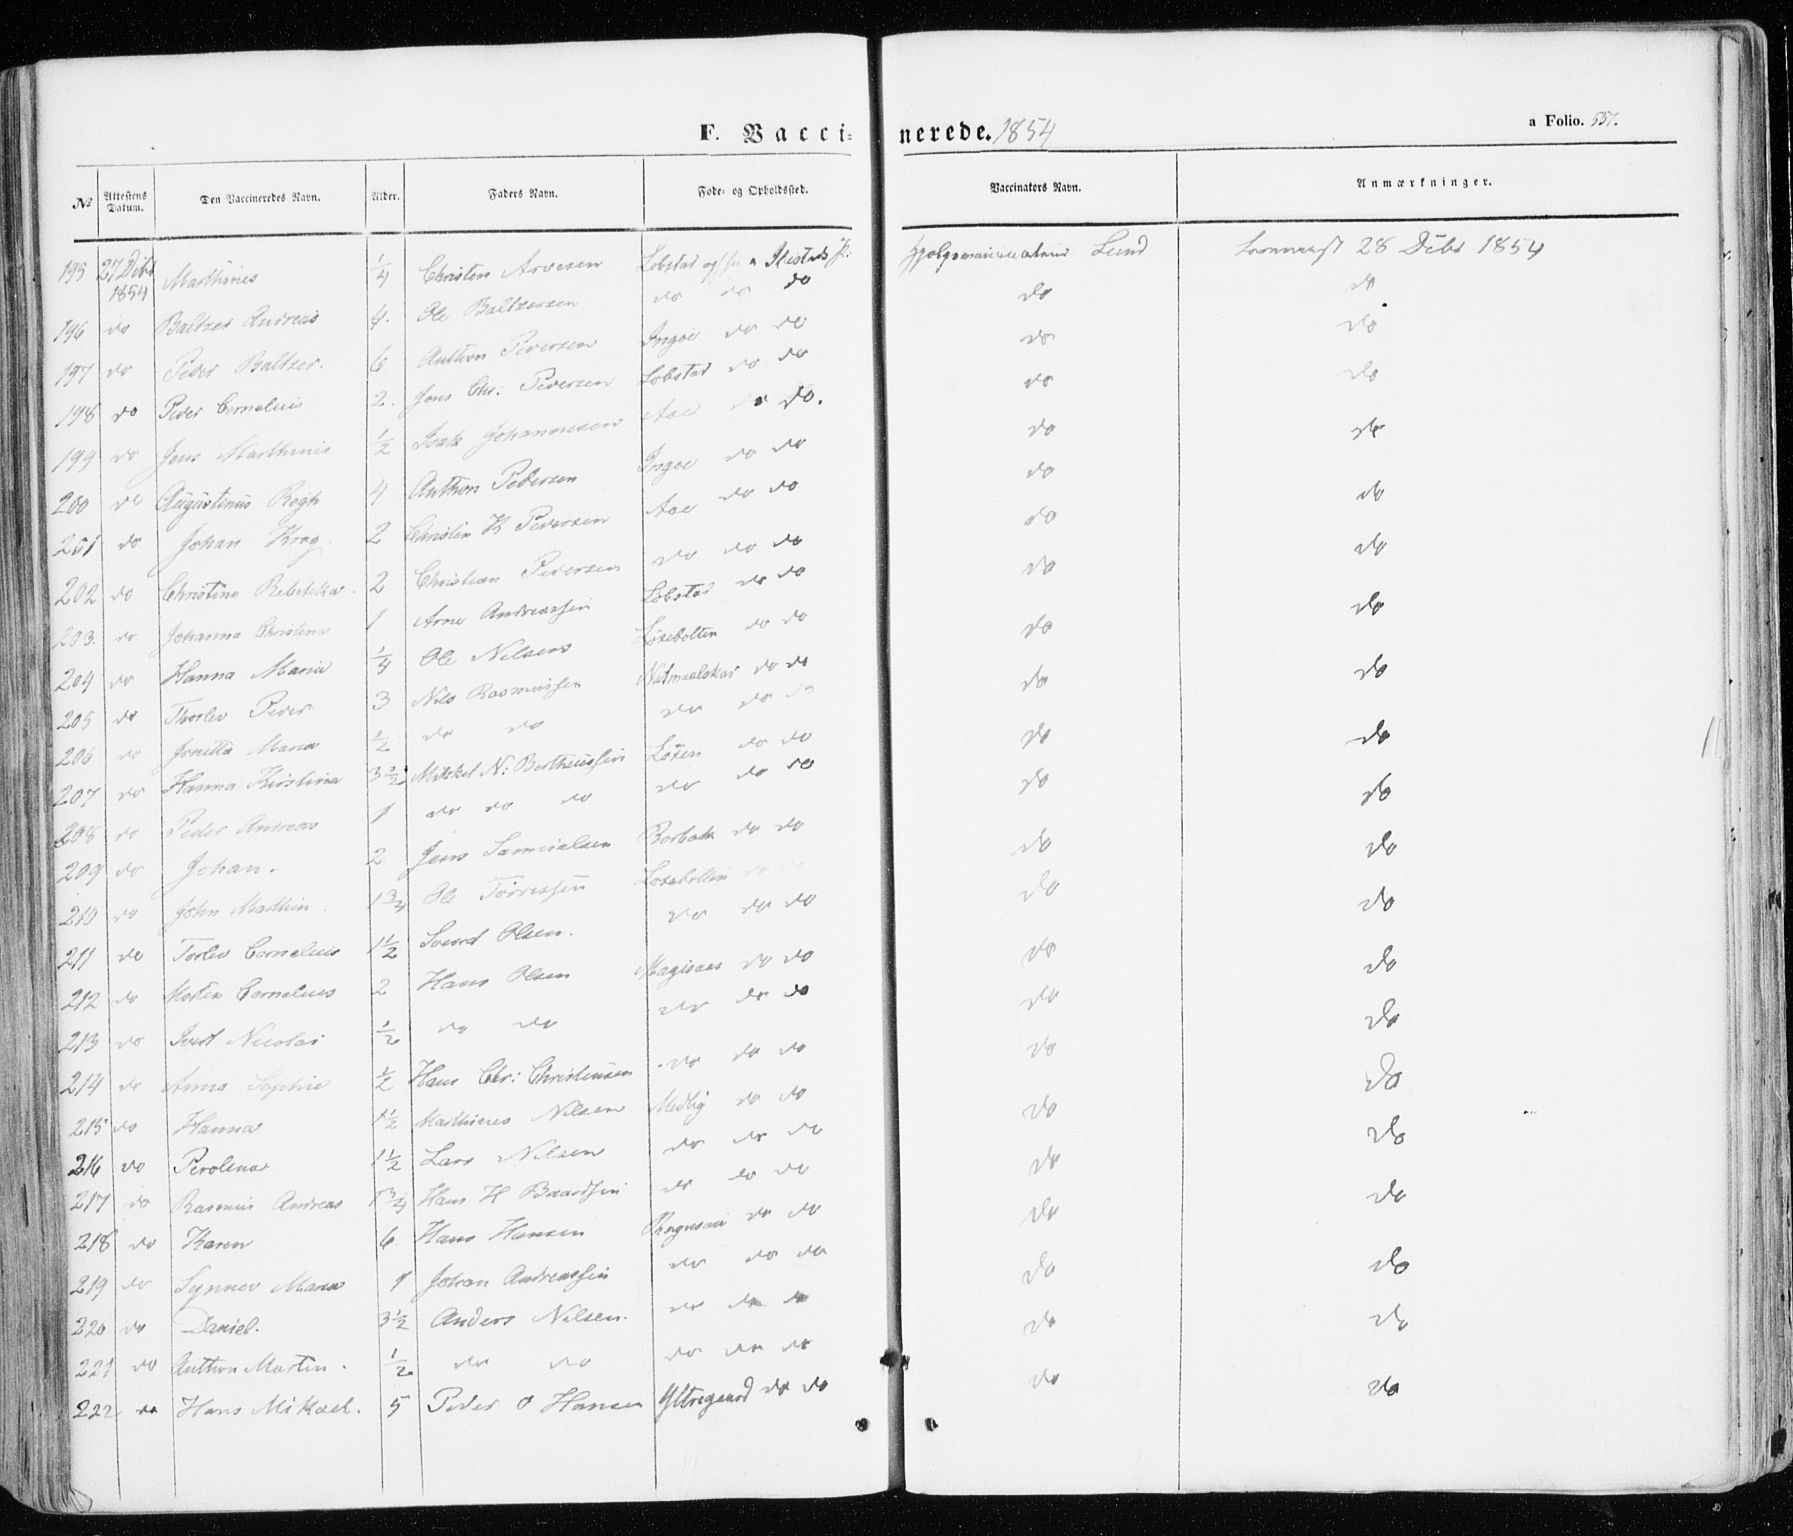 F. Vaccinerede. 1854
a Folio. 557.
№ Attestens Datum. Den Vaccineredes Navn. Alder. Faders Navn. Føde- og Opholdssted. Vaccinators Navn. Anmærkninger.
195 27 Dcbr 1854 Marthines 1/4 Christen Lobstad Lund 28 Dcbr 1854
196 do Baltzer Andreas 4. Ole Baltzersen do do do do do
197 do Peder Baltzer. 6 Anthon Pedersen Ingøe do do do do
198 do Peder Cornelius 2. Jens Chr: Pedersen Lobstad do do do do
199 do Jens Marthinis 1/2 Isak Johannesen Aae do do. do do
200 do Augustinus Rogh 4 Anthon Pedersen Ingøe do do do
201 do Johan Krog. 2 Christen K Pedersen Aae do do do do
202 do Christina Rebekka. 2 Christian Pedersen do do do do do
203. do Johanna Christena 1 Arne Andreassen Lobstad do do do do
204 do Hanna Maria 1/4 Ole Nilsens Løsebotten do do do do
205 do Thorlev Peder 3 Nils Rasmussen Natmaalskar do do do do
206 do Jonetta Maria 1/2 do do do do do do do
207 do Hanna Kirstina 3 1/2 Mikkel N: Bertheussen Løsen do do do do
208 do Peder Andreas 1 do do do do do do do do
209 do Johan. 2 Jens Samuelsen do do do do
210 do John Marthin. 1 3/4 Ole Tørressen Løsebotten do do do do
211 do Torlev Cornelius 1 1/2 Sivert Olsen. do do do do do
212 do Morten Cornelius 2 Hans Olsen do do do do
213 do Ivert Nicolai 1/2 do do do do do do do
214 do Anna Sophie 1/2 Hans Chr: Christensen do do do do do
215 do Hanna 1 1/2 Marthines Nilsen Medbÿ do do do do
216 do Perolena 1 1/2 Lars Nilsen do do do do do
217 do Rasmus Andreas 1 3/4 Hans H Baardsen do do do do do
218 do Karen 6 Hans Hansen do do do do
219 do Synnev Maria 1 Johan Andreassen do do do do do
220 do Daniel. 3 1/2 Anders Nilsen. do do do do do
221 do Anthon Martin. 1/2 do do do do do
222 do Hans Mikael. 5 Peder O Hansen Yttregaard do do do do